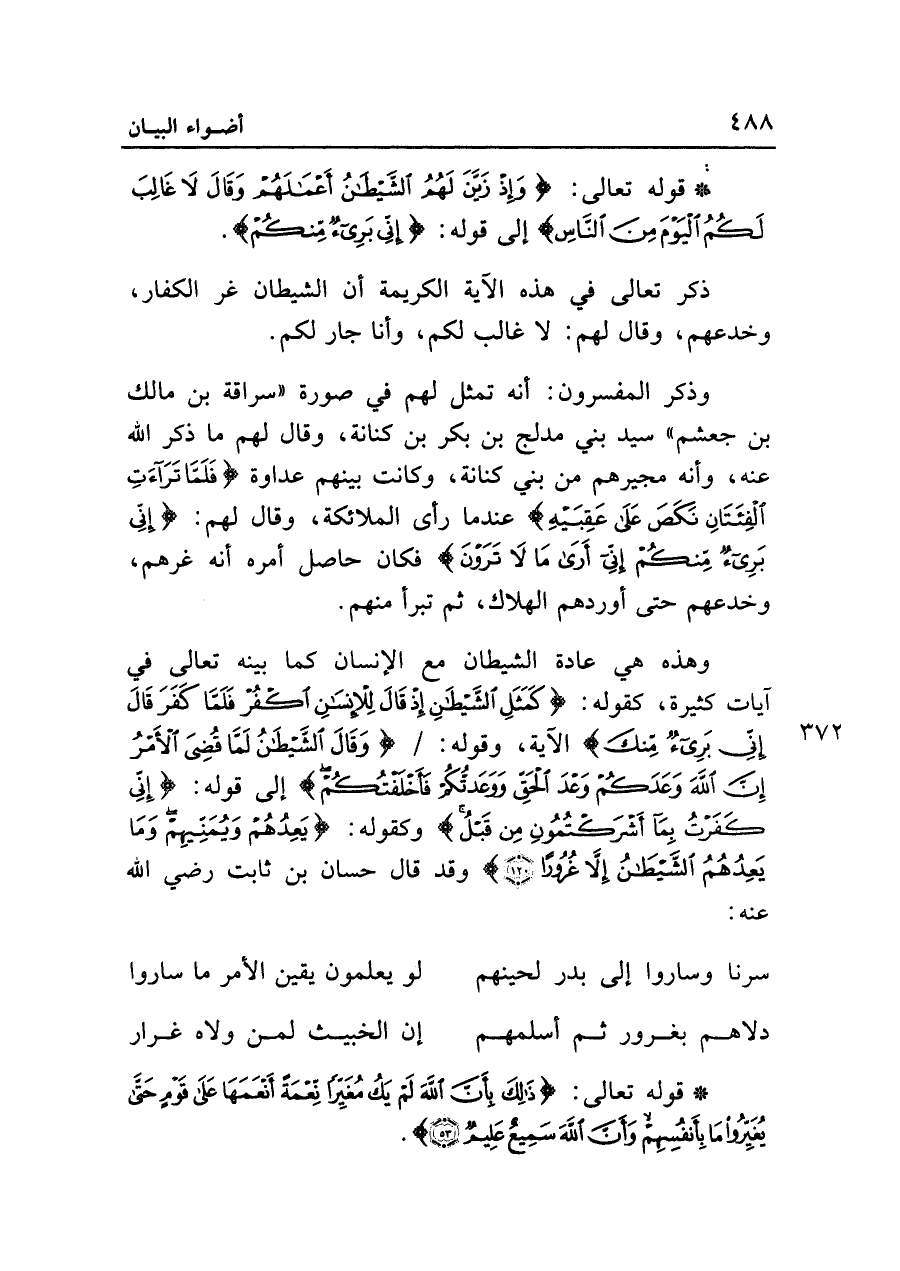 ٤٨٨ أضواء البيان
* قوله تعالى: ﴿ وَإِذْ زَيَّنَ لَهُمُ الشَّيْطَٰنُ أَعْمَٰلَهُمْ وَقَالَ لَا غَالِبَ
لَكُمُ الْيَوْمَ مِنَ النَّاسِ﴾ إلى قوله: ﴿ إِنِّي بَرِيٓءٌ مِّنكُمْ﴾.
ذكر تعالى في هذه الآية الكريمة أن الشيطان غر الكفار،
وخدعهم، وقال لهم: لا غالب لكم، وأنا جار لكم.
وذكر المفسرون: أنه تمثل لهم في صورة «سراقة بن مالك
بن جعشم» سيد بني مدلج بن بكر بن كنانة، وقال لهم ما ذكر الله
عنه، وأنه مجيرهم من بني كنانة، وكانت بينهم عداوة ﴿ فَلَمَّا تَرَآءَتِ
الْفِئَتَانِ نَكَصَ عَلَىٰ عَقِبَيْهِ﴾ عندما رأى الملائكة، وقال لهم: ﴿ إِنِّي
بَرِيٓءٌ مِّنكُمْ إِنِّيٓ أَرَىٰ مَا لَا تَرَوْنَ ﴾ فكان حاصل أمره أنه غرهم،
وخدعهم حتى أوردهم الهلاك، ثم تبرأ منهم.
وهذه هي عادة الشيطان مع الإنسان كما بينه تعالى في
آيات كثيرة، كقوله: ﴿ كَمَثَلِ الشَّيْطَٰنِ إِذْ قَالَ لِلْإِنسَٰنِ اكْفُرْ فَلَمَّا كَفَرَ قَالَ
إِنِّي بَرِيٓءٌ مِّنكَ﴾ الآية، وقوله: / ﴿ وَقَالَ الشَّيْطَٰنُ لَمَّا قُضِيَ الْأَمْرُ ٣٧٢
إِنَّ اللَّهَ وَعَدَكُمْ وَعْدَ الْحَقِّ وَوَعَدتُّكُمْ فَأَخْلَفْتُكُمْ ۖ﴾ إلى قوله: ﴿ إِنِّي
كَفَرْتُ بِمَآ أَشْرَكْتُمُونِ مِن قَبْلُ ۗ﴾ وكقوله: ﴿ يَعِدُهُمْ وَيُمَنِّيهِمْ ۖ وَمَا
يَعِدُهُمُ الشَّيْطَٰنُ إِلَّا غُرُورًا ١٢٠﴾ وقد قال حسان بن ثابت رضي الله
عنه:
سرنا وساروا إلى بدر لحينهم لو يعلمون يقين الأمر ما ساروا
دلاهم بغرور ثم أسلمهم إن الخبيث لمن ولاه غرار
* قوله تعالى: ﴿ ذَٰلِكَ بِأَنَّ اللَّهَ لَمْ يَكُ مُغَيِّرًا نِّعْمَةً أَنْعَمَهَا عَلَىٰ قَوْمٍ حَتَّىٰ
يُغَيِّرُوا مَا بِأَنفُسِهِمْ ۙ وَأَنَّ اللَّهَ سَمِيعٌ عَلِيمٌ ٥٣﴾.